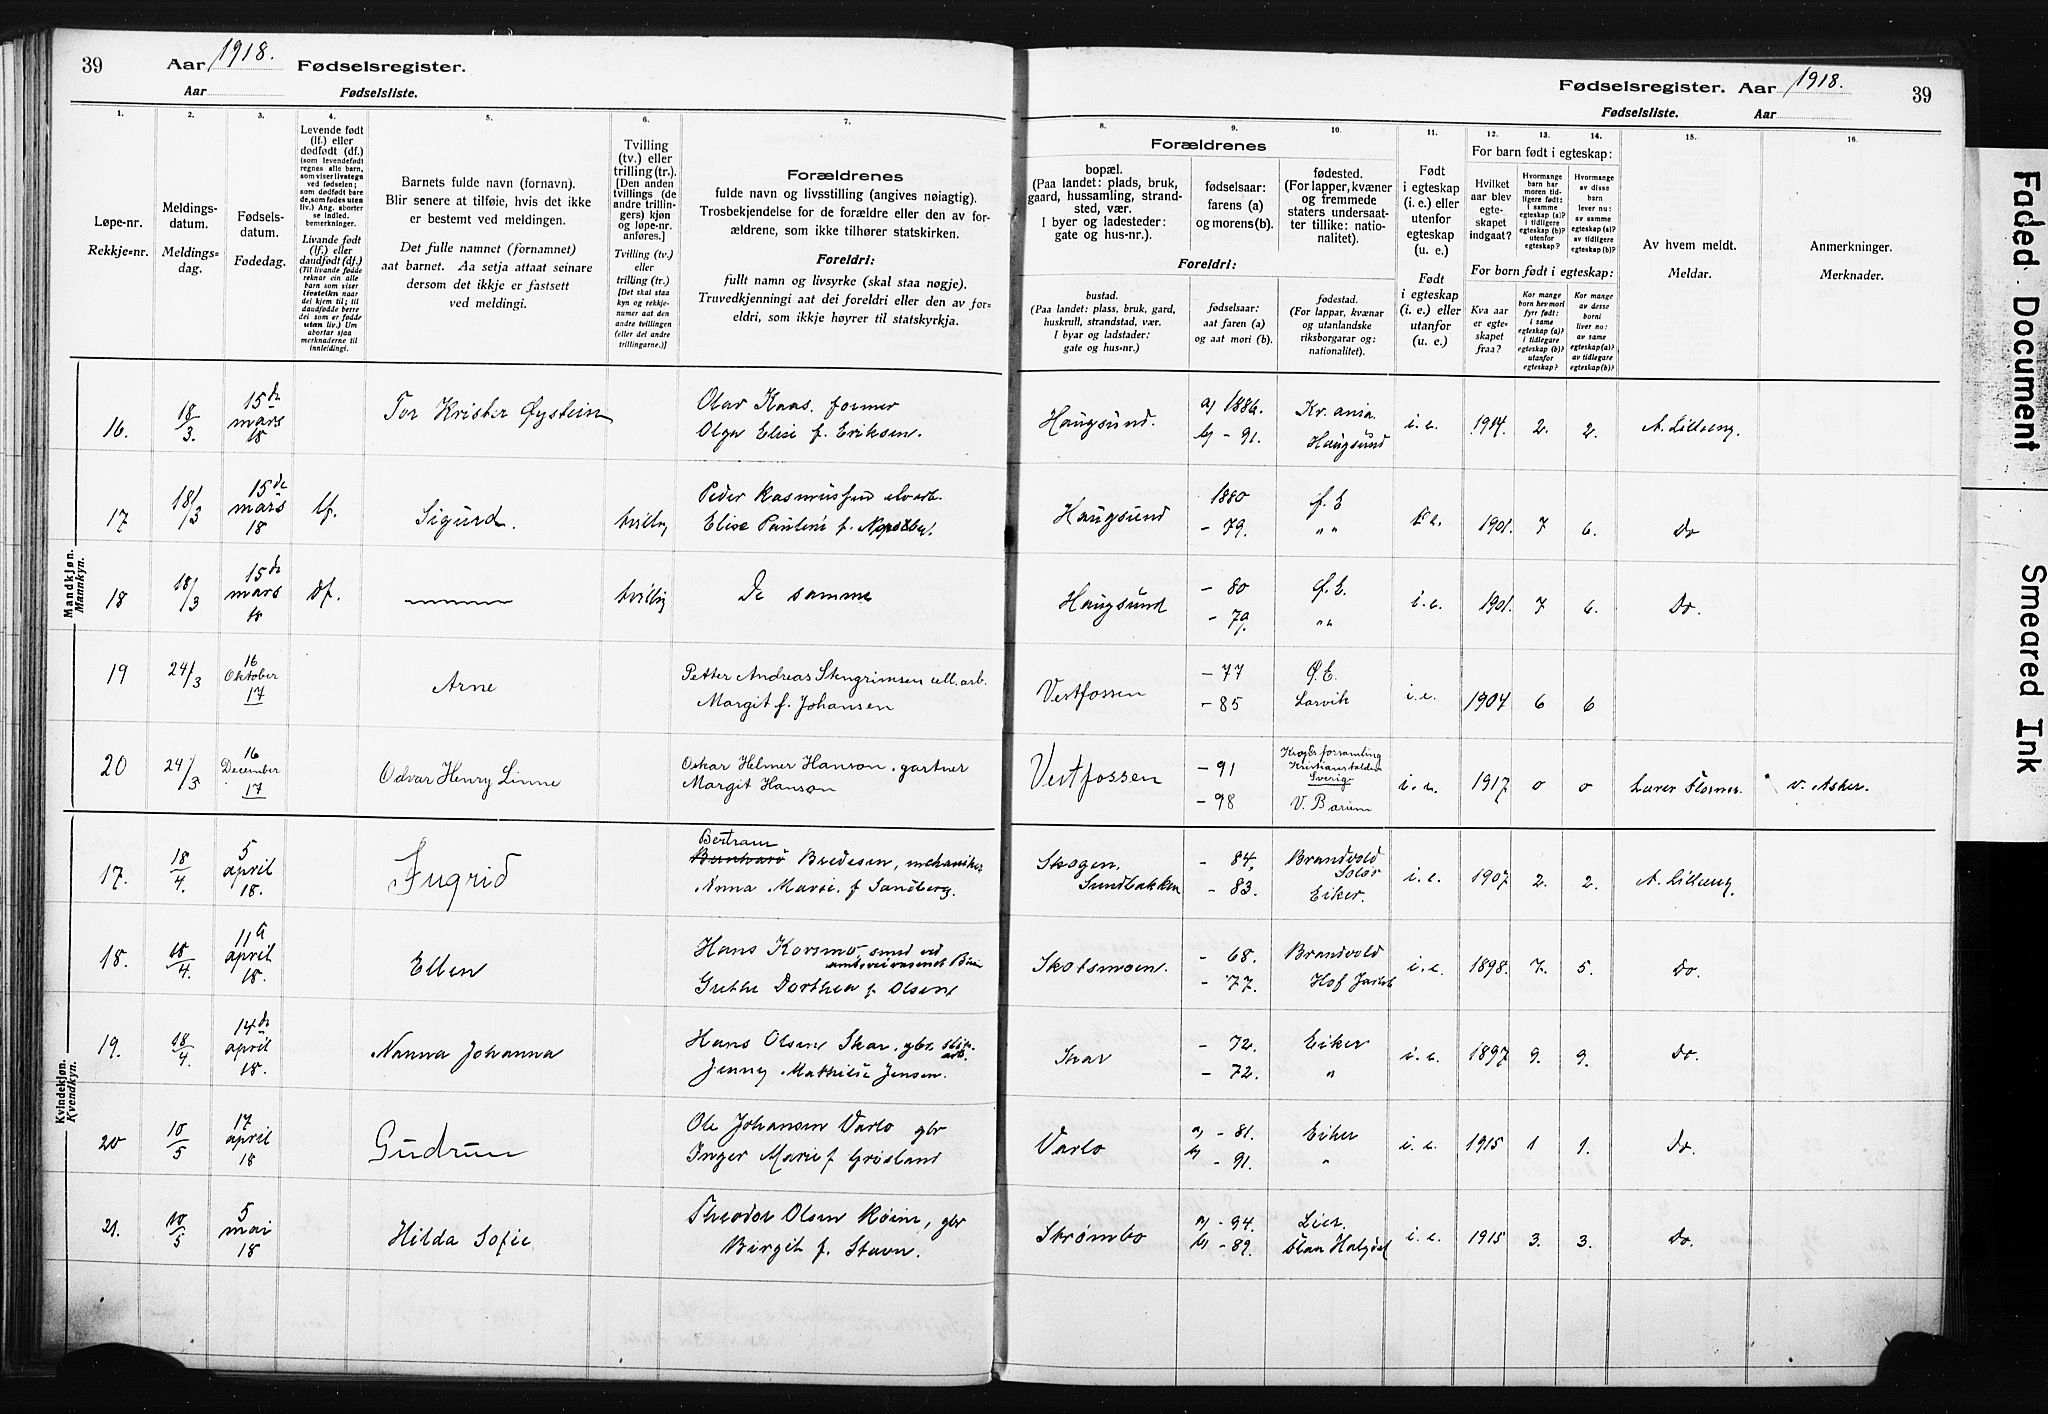 39
Aar 1918.
Fødselsregister.
Aar
Fødselsliste.
1.
2.
3.
4.
5.
6.
7.
Løpe-nr.
Rekkje-nr.
Meldings-
datum.
Meldings-
dag.
Fødsels-
datum.
Fødedag.
Levende født
(lf.) eller
dødfødt (df.)
(som levendefødt
regnes alle barn,
som viser livstegn
ved fødselen;
som dødfødt bare
de, som fødes uten
liv.) Ang. aborter
se indled.
bemerkninger.
Livande født
(lf.) eller
daudfødt (df.)
(Til livande fødde
reknar ein alle
barn som viser
livsteikn naar
dei kjem til; til
daudfødde berre
dei som er fødde
utan liv.) Um
abortar sjaa
merknaderne til
innleidingi.
Barnets fulde navn (fornavn).
Blir senere at tilføie, hvis det ikke
er bestemt ved meldingen.
Det fulle namnet (fornamnet)
aat barnet. Aa setja attaat seinare
dersom det ikkje er fastsett
ved meldingi.
Tvilling
(tv.) eller
trilling (tr.).
[Den anden
tvillings (de
andre trillin-
gers) kjøn
og løpe-nr.
anføres.]
Tvilling (tv.)
eller
trilling (tr.)
[Det skal staa
kyn og rekkje-
numer aat den
andre tvillingen
(eller dei andre
trillingarne.)]
Forældrenes
fulde navn og livsstilling (angives nøiagtig).
Trosbekjendelse for de forældre eller den av for-
ældrene, som ikke tilhører statskirken.
Foreldri:
fullt namn og livsyrke (skal staa nøgje).
Truvedkjenningi aat dei foreldri eller den av for-
eldri, som ikkje høyrer til statskyrkja.
Mandkjøn.
Mannkyn.
16.
18/3.
15de mars 18
Tor Krister Øystein
Olav Kaas. former
Olga Elise f. Eriksen.
17
18/3
15de mars 18
lf.
Sigurd.
tvilling
Peder Rasmussen elvarb.
Elise Pauline f.
18
18/3
15de mars 18
df.
tvilling
De samme
19
24/3
16 Oktober 17
Arne
Petter Andreas Stengrimsen cell. arb.
Margit f. Johansen
20
24/3
16 December 17
Odvar Henry Linne
Oskar Helmer Hanson, gartner
Margit Hanson
Kvindekjøn.
Kvendkyn.
17.
18/4.
5 april 18.
Ingrid
Bertram
Bernhard Bredesen, mekaniker
Anna Marie f Sandberg.
18.
18/4.
april 18.
Ellen
Hans Korsmo, smed ved
Grethe Dorthea f Olsen
19.
18/4.
14de april 18.
Nanna Johanna
Hans Olsen Skar, gbr.
Jenny Mathilde Jensen.
20
10/5
17 april 18
Gudrun
Ole Johansen Varlo gbr
Inger Marie f Grosland
21.
10/5
5 mai 18
Hilda Sofie
Theodor Olsen, gbr
Birgit f. Stavn.
Fødselsregister. Aar 1918.
39
Fødselsliste.
Aar
8.
9.
10.
11.
12.
13.
14.
15.
16.
Forældrenes
bopæl.
(Paa landet: plads, bruk,
gaard, hussamling, strand-
sted, vær.
I byer og ladesteder:
gate og hus-nr.).
fødselsaar:
farens (a)
og morens (b).
fødested.
(For lapper, kvæner
og fremmede
staters undersaat-
ter tillike: natio-
nalitet).
Foreldri:
bustad.
(Paa landet: plass, bruk, gard,
huskrull, strandstad, vær.
I byar og ladstader:
gate og hus-nr.)
fødselsaar:
aat faren (a)
og aat mori (b).
fødestad.
(For lappar, kvænar
og utanlandske
riksborgarar og:
nationalitet).
Født
i egteskap
(i. e.) eller
utenfor
egteskap
(u. e.)
Født
i egteskap
(i. e.) eller
utanfor
(u. e.)
For barn født i egteskap:
Hvilket
aar blev
egte-
skapet
indgaat?
Hvormange
barn har
moren tid-
ligere født:
i samme
egteskap (a)?
i tidligere
egteskap (b)?
utenfor
egteskap?
Hvormange
av disse
barn
lever nu:
av samme
egteskap (a)?
av tidligere
egteskap (b)?
For born født i egteskap:
Kva aar
er egte-
skapet
fraa?
Kor mange
born hev mori
fyrr født:
i same
egteskap (a)?
i tidlegare
egteskap (b)?
utanfor
egteskap?
Kor mange
av desse
borni
liver no:
av same
egteskap (a)?
av tidlegare
egteskap (b)?
Av hvem meldt.
Meldar.
Anmerkninger.
Merknader.
Haugsund.
a) 1886.
b) - 91.
Kr.ania.
Haugsund
i. e.
1914.
2.
2.
A. Lilleeng.
Haugsund
1880
- 79.
Ø. E
" "
i. e.
1901.
7
6.
Do
Haugsund
- 80
- 79.
Ø. E.
" "
i. e.
1901.
7
6.
Do.
Vestfossen
- 77
- 85
Ø. E.
Larvik
i. e.
1904
6
6
Vestfossen
- 91
- 98
Kristianstad
Sverig
V. Bærum
i. e.
1917
0
0
v. Asker.
Skogen,
Sundbakken
- 84,
- 83.
Brandvold
Solør
Eiker.
i. e.
1907
2.
2.
A. Lilleeng.
Skotsmoen.
- 68.
- 77.
Brandvold
Hof
i. e.
1898.
7.
5.
Do.
Skar
- 72.
- 72.
Eiker
"
i. e.
1897
9.
9.
Do.
Varlo
a) - 81.
b) - 91.
Eiker
"
i. e.
1915
1
1.
Do.
Strømbo
a) - 94.
b) - 89.
Lier.
i. e.
1915
3.
3.
Do.
Faded Document
Smeared Ink